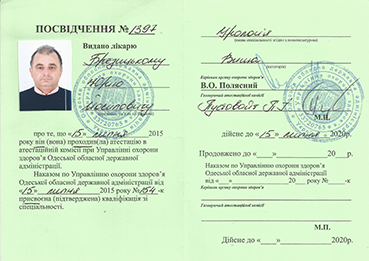 ПОСВІДЧЕННЯ № 1397
Видано лікарю
Юрію
Йосиповичу
про те, що «15» липня 2015
року він (вона) проходив(ла) атестацію в
атестаційній комісії при Управлінні охорони
здоров'я Одеської обласної державної
адміністрації.
Наказом по Управлінню охорони здоров'я
Одеської обласної державної адміністрації від
«15» липня 2015 року №154-к
присвоєна (підтверджена) кваліфікація зі
спеціальності.
Урологія
Вища
(категорія)
Керівник органу охорони здоров'я
В.О. Полясний
Голова атестаційної комісії
М.П.
дійсне до «15» липня 2020р.
Продовжено до «___»________20__р.
Наказом по Управлінню охорони здоров'я
Одеської обласної державної адміністрації
від «__»________20__ року №__-к
Керівник органу охорони здоров'я
Голова атестаційної комісії
М.П.
Дійсне до «___»________20__р.